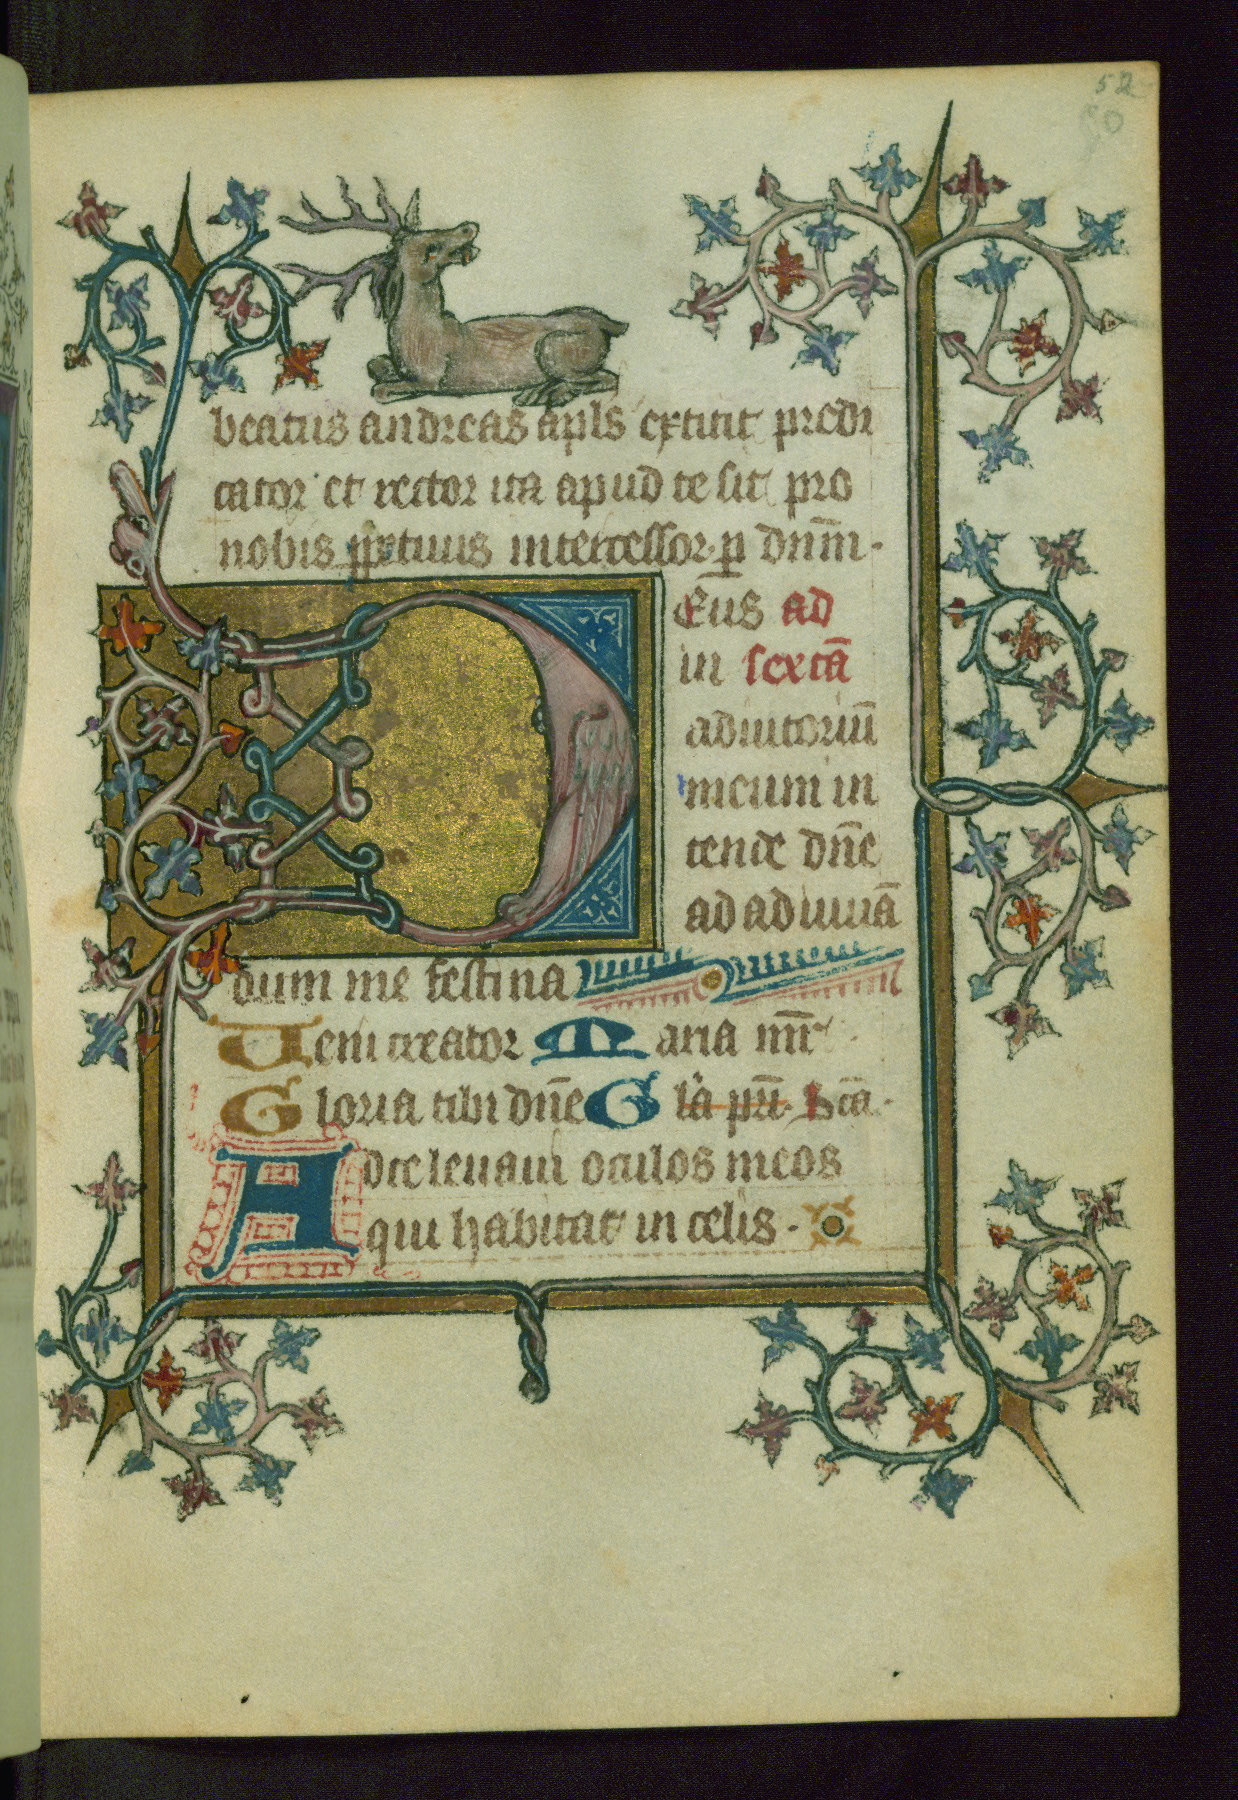 52
80
beatus andreas apl̄s extitit predi
cator et rector ita apud te sit pro
nobis ꝑpetuus intercessor. ꝑ dn̄m.
Eus ad
in sextā
adiutoriū
meum in
tende dn̄e
ad adiuuā
dum me festina
Ueni creator Maria mr̄
Gloria tibi dn̄e Gla pri. Sca.
Ad te leuaui oculos meos
qui habitat in celis.